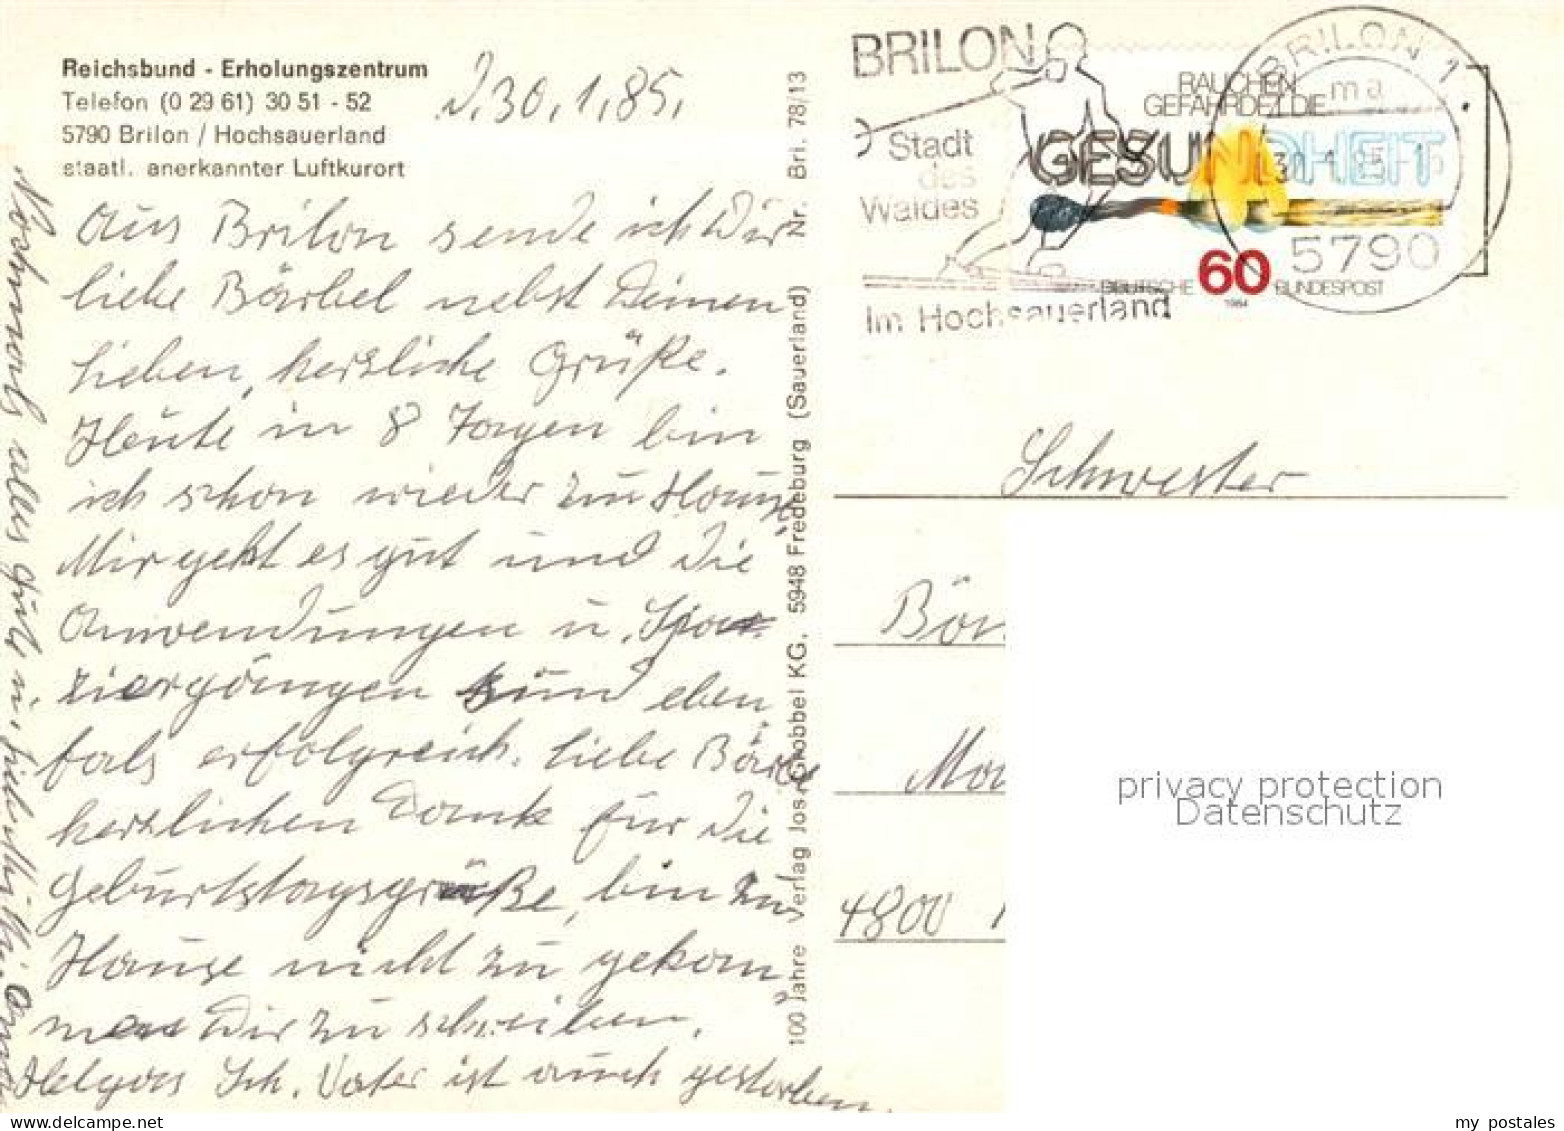 Reichsbund - Erholungszentrum
Telefon (0 29 61) 30 51 - 52
5790 Brilon / Hochsauerland
staatl. anerkannter Luftkurort
d. 30. 1. 85.
Aus Brilon sende ich Dir
liebe Bärbel nebst Deinen
Lieben, herzliche Grüße.
Heute in 8 Tagen bin
ich schon wieder zu Hause.
Mir geht es gut und die
Anwendungen u. Spa-
ziergängen sind eben
fals erfolgreich. Liebe Bärbel
herzlichen Dank für die
Geburtstagsgrüße, bin zu
Hause nicht zu gekom
men Dir zu schreiben.
Helgas Sch. Vater ist auch gestorben.
Nochmals alles gute u.
Bri. 78/13
Nr.
(Sauerland)
5948 Fredeburg
Verlag Jos. Grobbel KG,
100 Jahre
BRILON
Stadt
des
Waldes
Im Hochsauerland
RAUCHEN
GEFÄHRDET DIE
GESUNDHEIT
DEUTSCHE 60 BUNDESPOST
1984
BRILON 1
ma
30.1.85-15
5790
Schwester
4800
privacy protection
Datenschutz
my postales